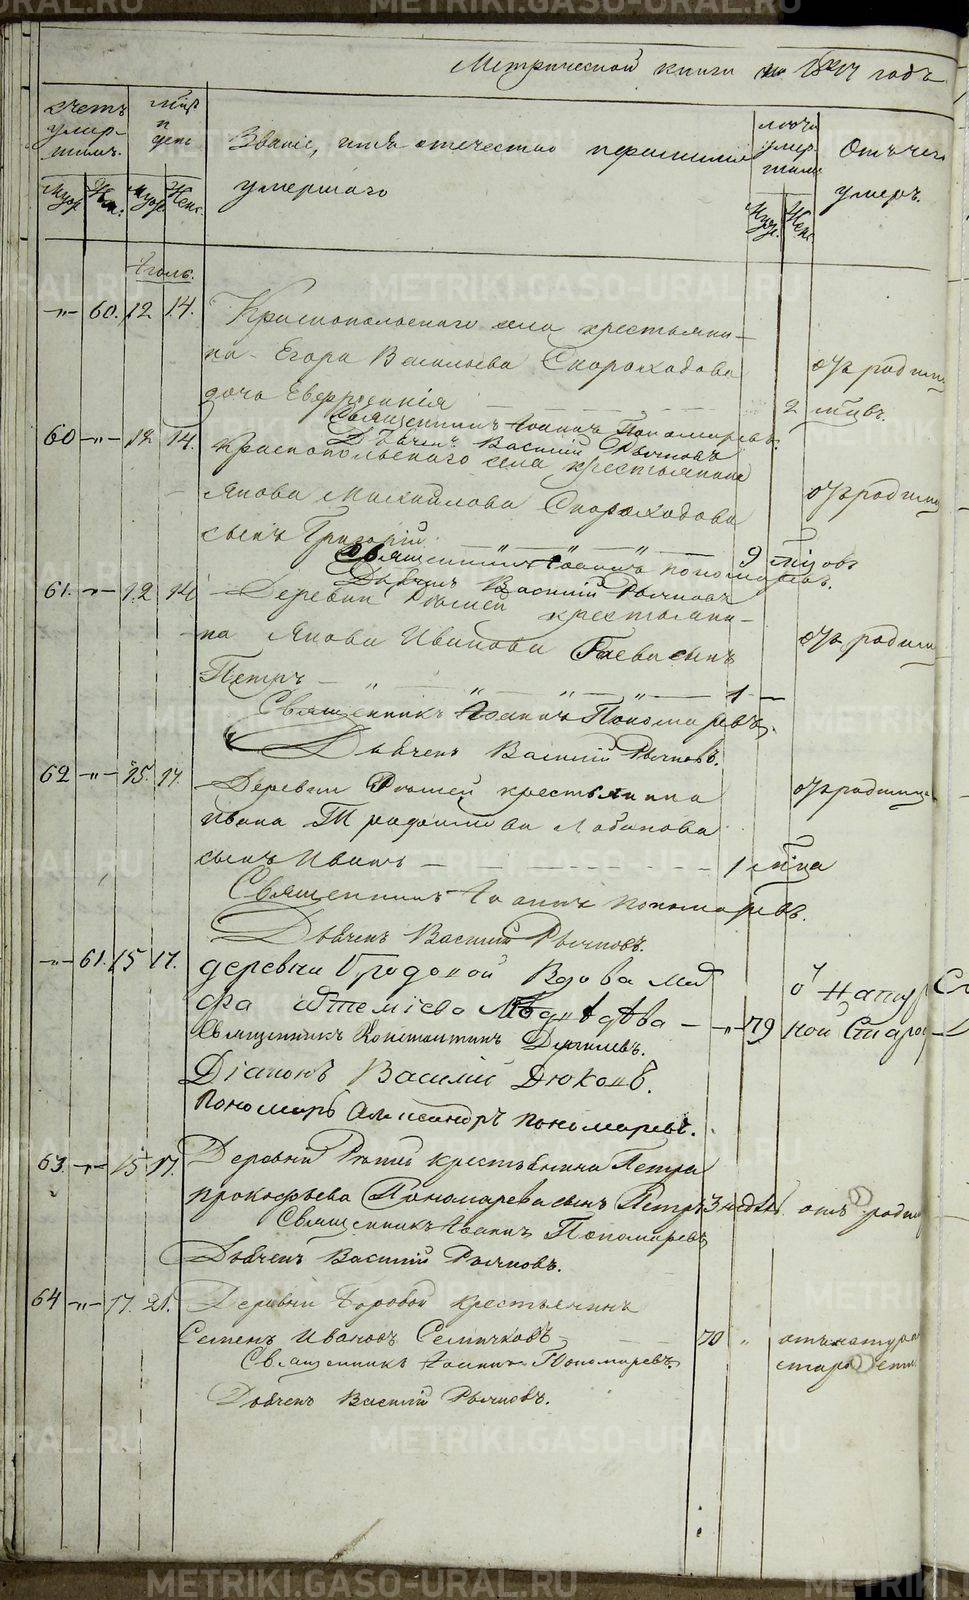 METRIKI.GASO-URAL.RU
Метрической книги на годъ
счетъ умер-шихъ.
Муж. Жен. Муж. Жен.
и день
Званіе, имя отечество прозваніе
умершаго
лѣта умер-шихъ
Муж. Жен.
Отъ чего
умеръ.
Іюль.
-"- 60. 12 14. Краснопольскаго села крестьяни-
на Егора Васильева Скороходова
дочь Евфросинія 2
отъ родимца
Священникъ Іоаннъ Пономаревъ.
Дьячекъ Василій Рычковъ
60 -"- 12 14. Краснопольскаго села крестьянина
Якова Михайлова Скороходова
отъ родимца
сынъ Григорій 9 мѣсовъ
Священникъ Іоаннъ Пономаревъ.
Дьячекъ Василій Рычковъ
61. -"- 12 14 Деревни крестьяни-
на Якова Иванова сынъ
отъ родимца
Петръ 1
Священникъ Іоаннъ Пономаревъ.
Дьячекъ Василій Рычковъ.
62 -"- 15. 17. Деревни крестьянина
отъ родимца
Ивана Лобанова
сынъ Иванъ 1 мца
Священникъ Іоаннъ Пономаревъ.
Дьячекъ Василій Рычковъ.
-"- 61. 15 17. деревни Бродовой Вдова Мар
фа Артеміева Медвѣдева -"- 79
отъ натур
ной Старос
Священникъ Константинъ
Діаконъ Василій Дюковъ.
Пономарь Александръ Пономаревъ.
63. -"- 15 17. Деревни крестьянина Петра
Прокофьева Пономарева сынъ Петръ 3 недѣль отъ родим
Священникъ Іоаннъ Пономаревъ
Дьячекъ Василій Рычковъ.
64 -"- 17. 21. Деревни Боровой крестьянинъ
Семенъ Ивановъ Семячковъ 70 "
отъ натура
старости
Священникъ Іоаннъ Пономаревъ.
Дьячекъ Василій Рычковъ.
METRIKI.GASO-URAL.RU